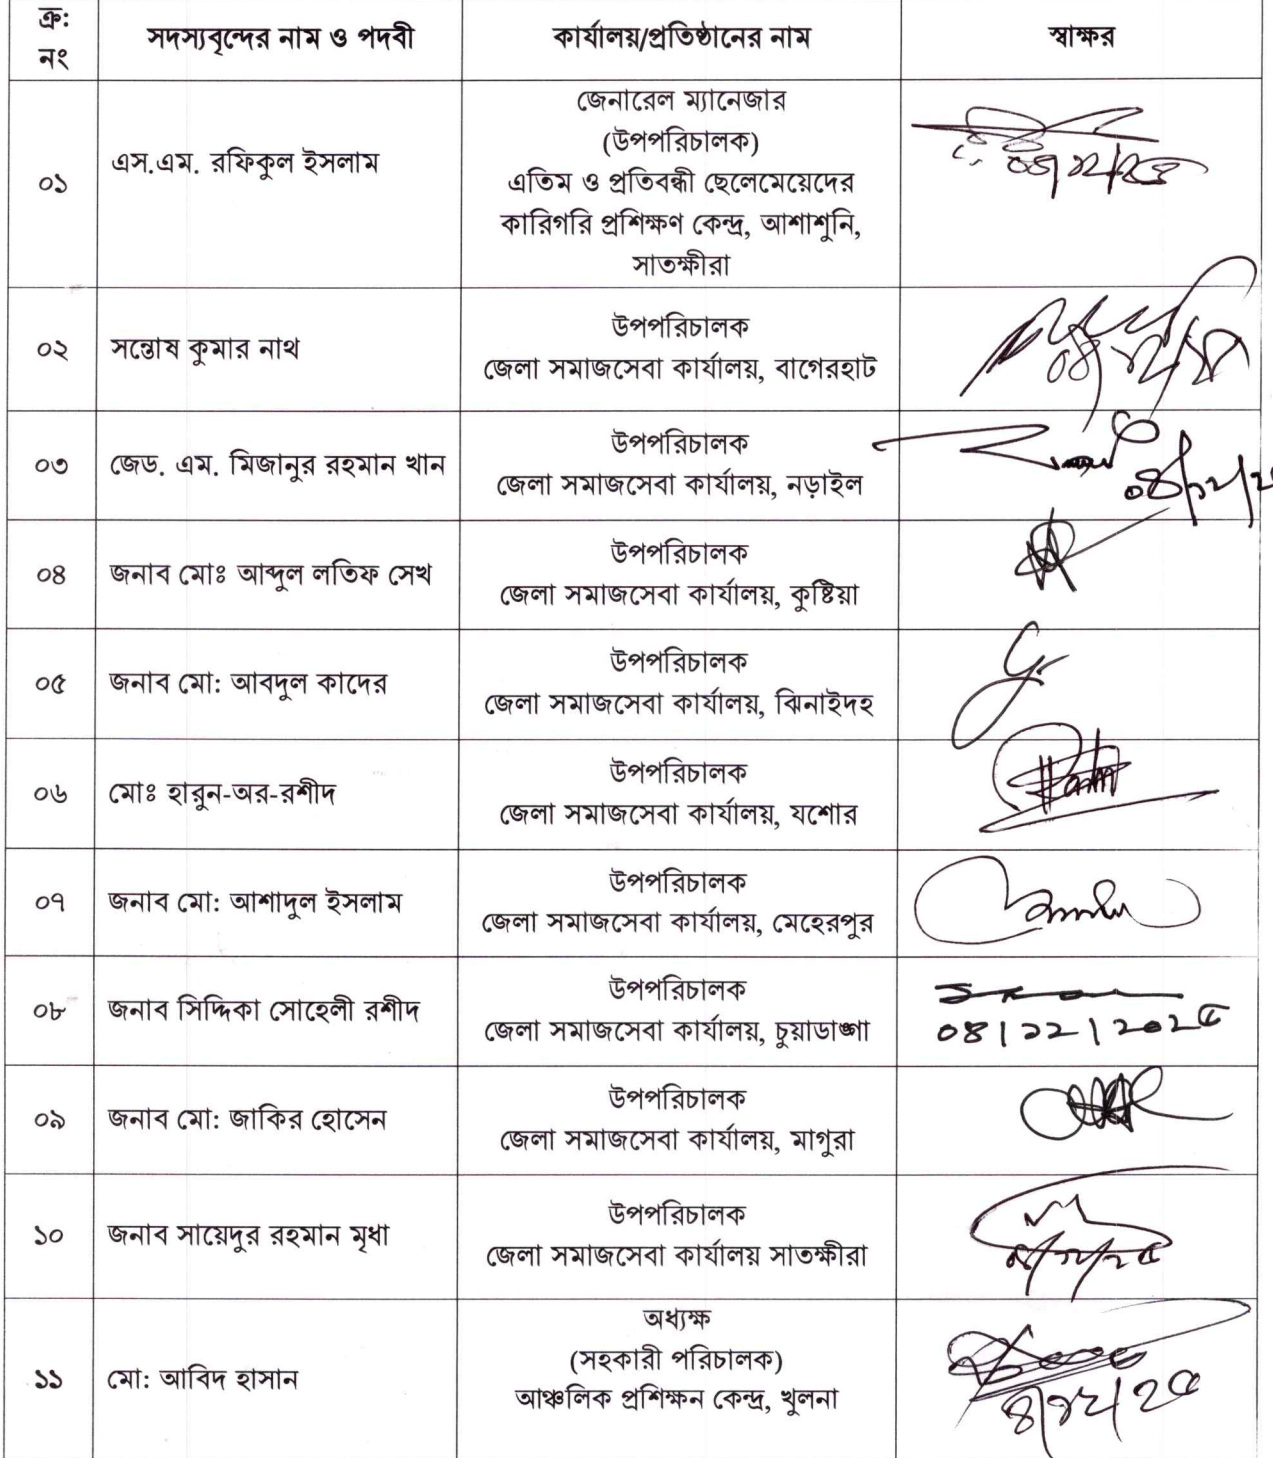 ক্র:
নং
সদস্যবৃন্দের নাম ও পদবী
কার্যালয়/প্রতিষ্ঠানের নাম
স্বাক্ষর
০১
এস.এম. রফিকুল ইসলাম
জেনারেল ম্যানেজার
(উপপরিচালক)
এতিম ও প্রতিবন্ধী ছেলেমেয়েদের
কারিগরি প্রশিক্ষণ কেন্দ্র, আশাশুনি,
সাতক্ষীরা
০২
সন্তোষ কুমার নাথ
উপপরিচালক
জেলা সমাজসেবা কার্যালয়, বাগেরহাট
০৩
জেড. এম. মিজানুর রহমান খান
উপপরিচালক
জেলা সমাজসেবা কার্যালয়, নড়াইল
০৪
জনাব মোঃ আব্দুল লতিফ সেখ
উপপরিচালক
জেলা সমাজসেবা কার্যালয়, কুষ্টিয়া
০৫
জনাব মো: আবদুল কাদের
উপপরিচালক
জেলা সমাজসেবা কার্যালয়, ঝিনাইদহ
০৬
মোঃ হারুন-অর-রশীদ
উপপরিচালক
জেলা সমাজসেবা কার্যালয়, যশোর
০৭
জনাব মো: আশাদুল ইসলাম
উপপরিচালক
জেলা সমাজসেবা কার্যালয়, মেহেরপুর
০৮
জনাব সিদ্দিকা সোহেলী রশীদ
উপপরিচালক
জেলা সমাজসেবা কার্যালয়, চুয়াডাঙ্গা
০৪|১২|২০২৫
০৯
জনাব মো: জাকির হোসেন
উপপরিচালক
জেলা সমাজসেবা কার্যালয়, মাগুরা
১০
জনাব সায়েদুর রহমান মৃধা
উপপরিচালক
জেলা সমাজসেবা কার্যালয় সাতক্ষীরা
১১
মো: আবিদ হাসান
অধ্যক্ষ
(সহকারী পরিচালক)
আঞ্চলিক প্রশিক্ষন কেন্দ্র, খুলনা
৪/১২/২৫